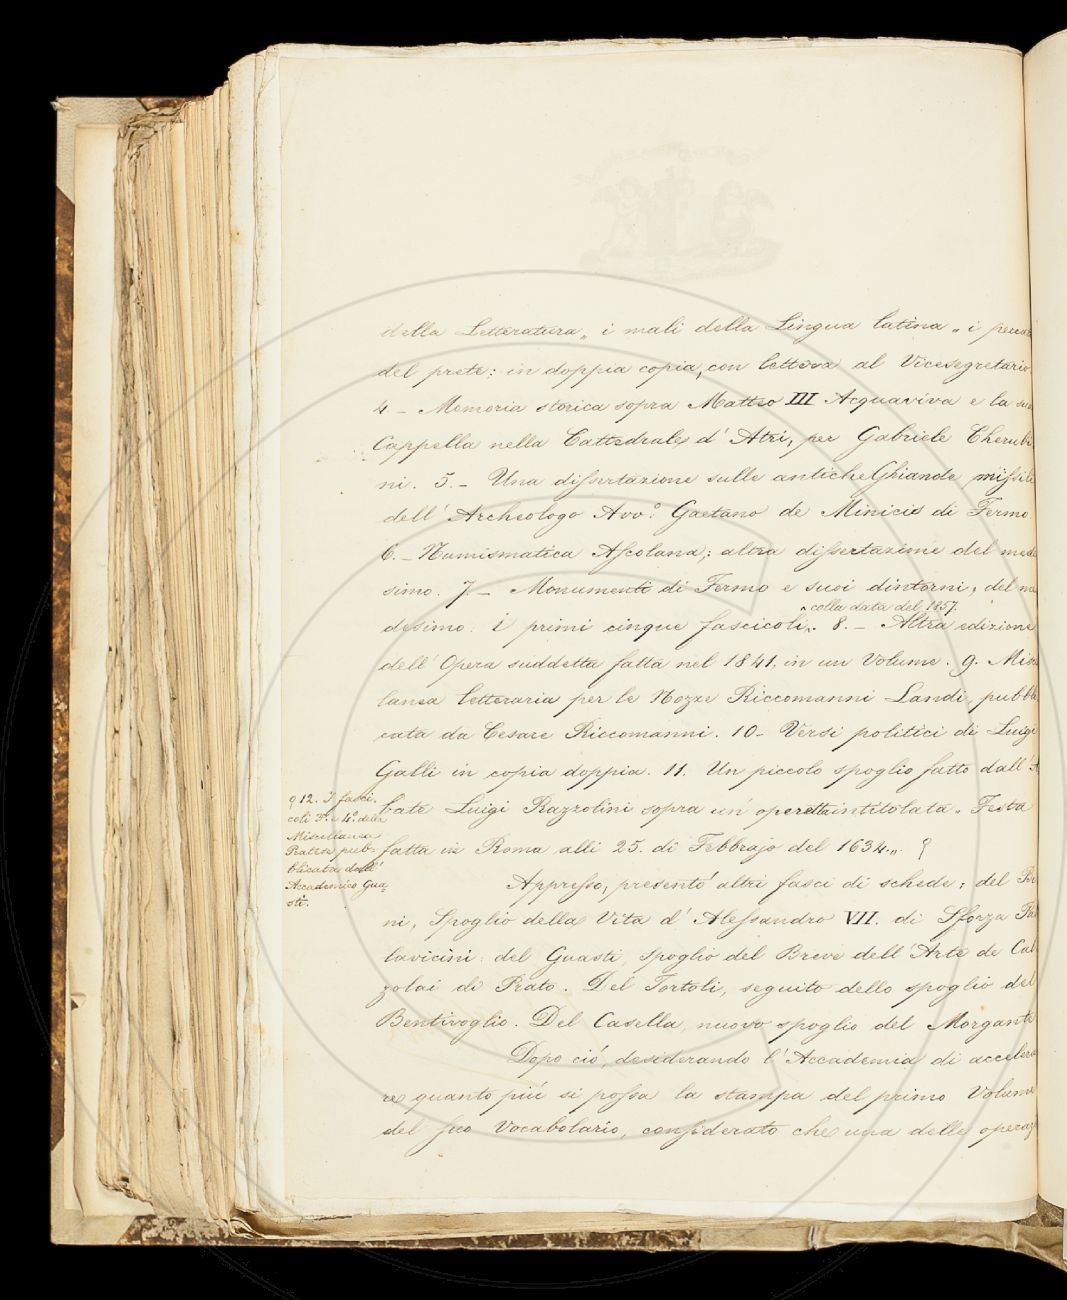 della Letteratura„ i mali della Lingua latina „ i pecca
del prete: in doppia copia, con lettera al Vicesegretario
4 – Memoria storica sopra Matteo III Acquaviva e la sua
Cappella nella Cattedrale d' Atri, per Gabriele Cherubi
ni. 5. – Una dissertazione sulle antiche Ghiande missili
dell' Archeologo Avv.º Gaetano de Minicis di Fermo.
6. – Numismatica Ascolana; altra dissertazione del mede
simo. 7. – Monumenti di Fermo e suoi dintorni, del me
colla data del 1857.
desimo: i primi cinque fascicoli. 8. – Altra edizione
dell' Opera suddetta fatta nel 1841, in un Volume. 9. Misc
lanea letteraria per le Nozze Riccomanni Landi, pubbli
cata da Cesare Riccomanni. 10 – Versi politici di Luigi
Galli in copia doppia. 11. Un piccolo spoglio fatto dall' A
bate Luigi Razzolini sopra un' operetta intitolata „ Festa
fatta in Roma alli 25. di Febbrajo del 1634.„
12. I fasci
coli 3º. e 4º. della
Miscellanea
Pratese pub
blicata dall'
Accademico Gua
sti.
Appresso, presentò altri fasci di schede; del Bi
ni, Spoglio della Vita d' Alessandro VII. di Sforza Pal
lavicini: del Guasti, spoglio del Breve dell' Arte de Cal
zolai di Prato. Del Tortoli, seguito dello spoglio del
Bentivoglio. Del Casella, nuovo spoglio del Morgante
Dopo ciò, desiderando l' Accademia di accelera
re quanto più si possa la stampa del primo Volume
del suo Vocabolario, considerato che una delle operaz